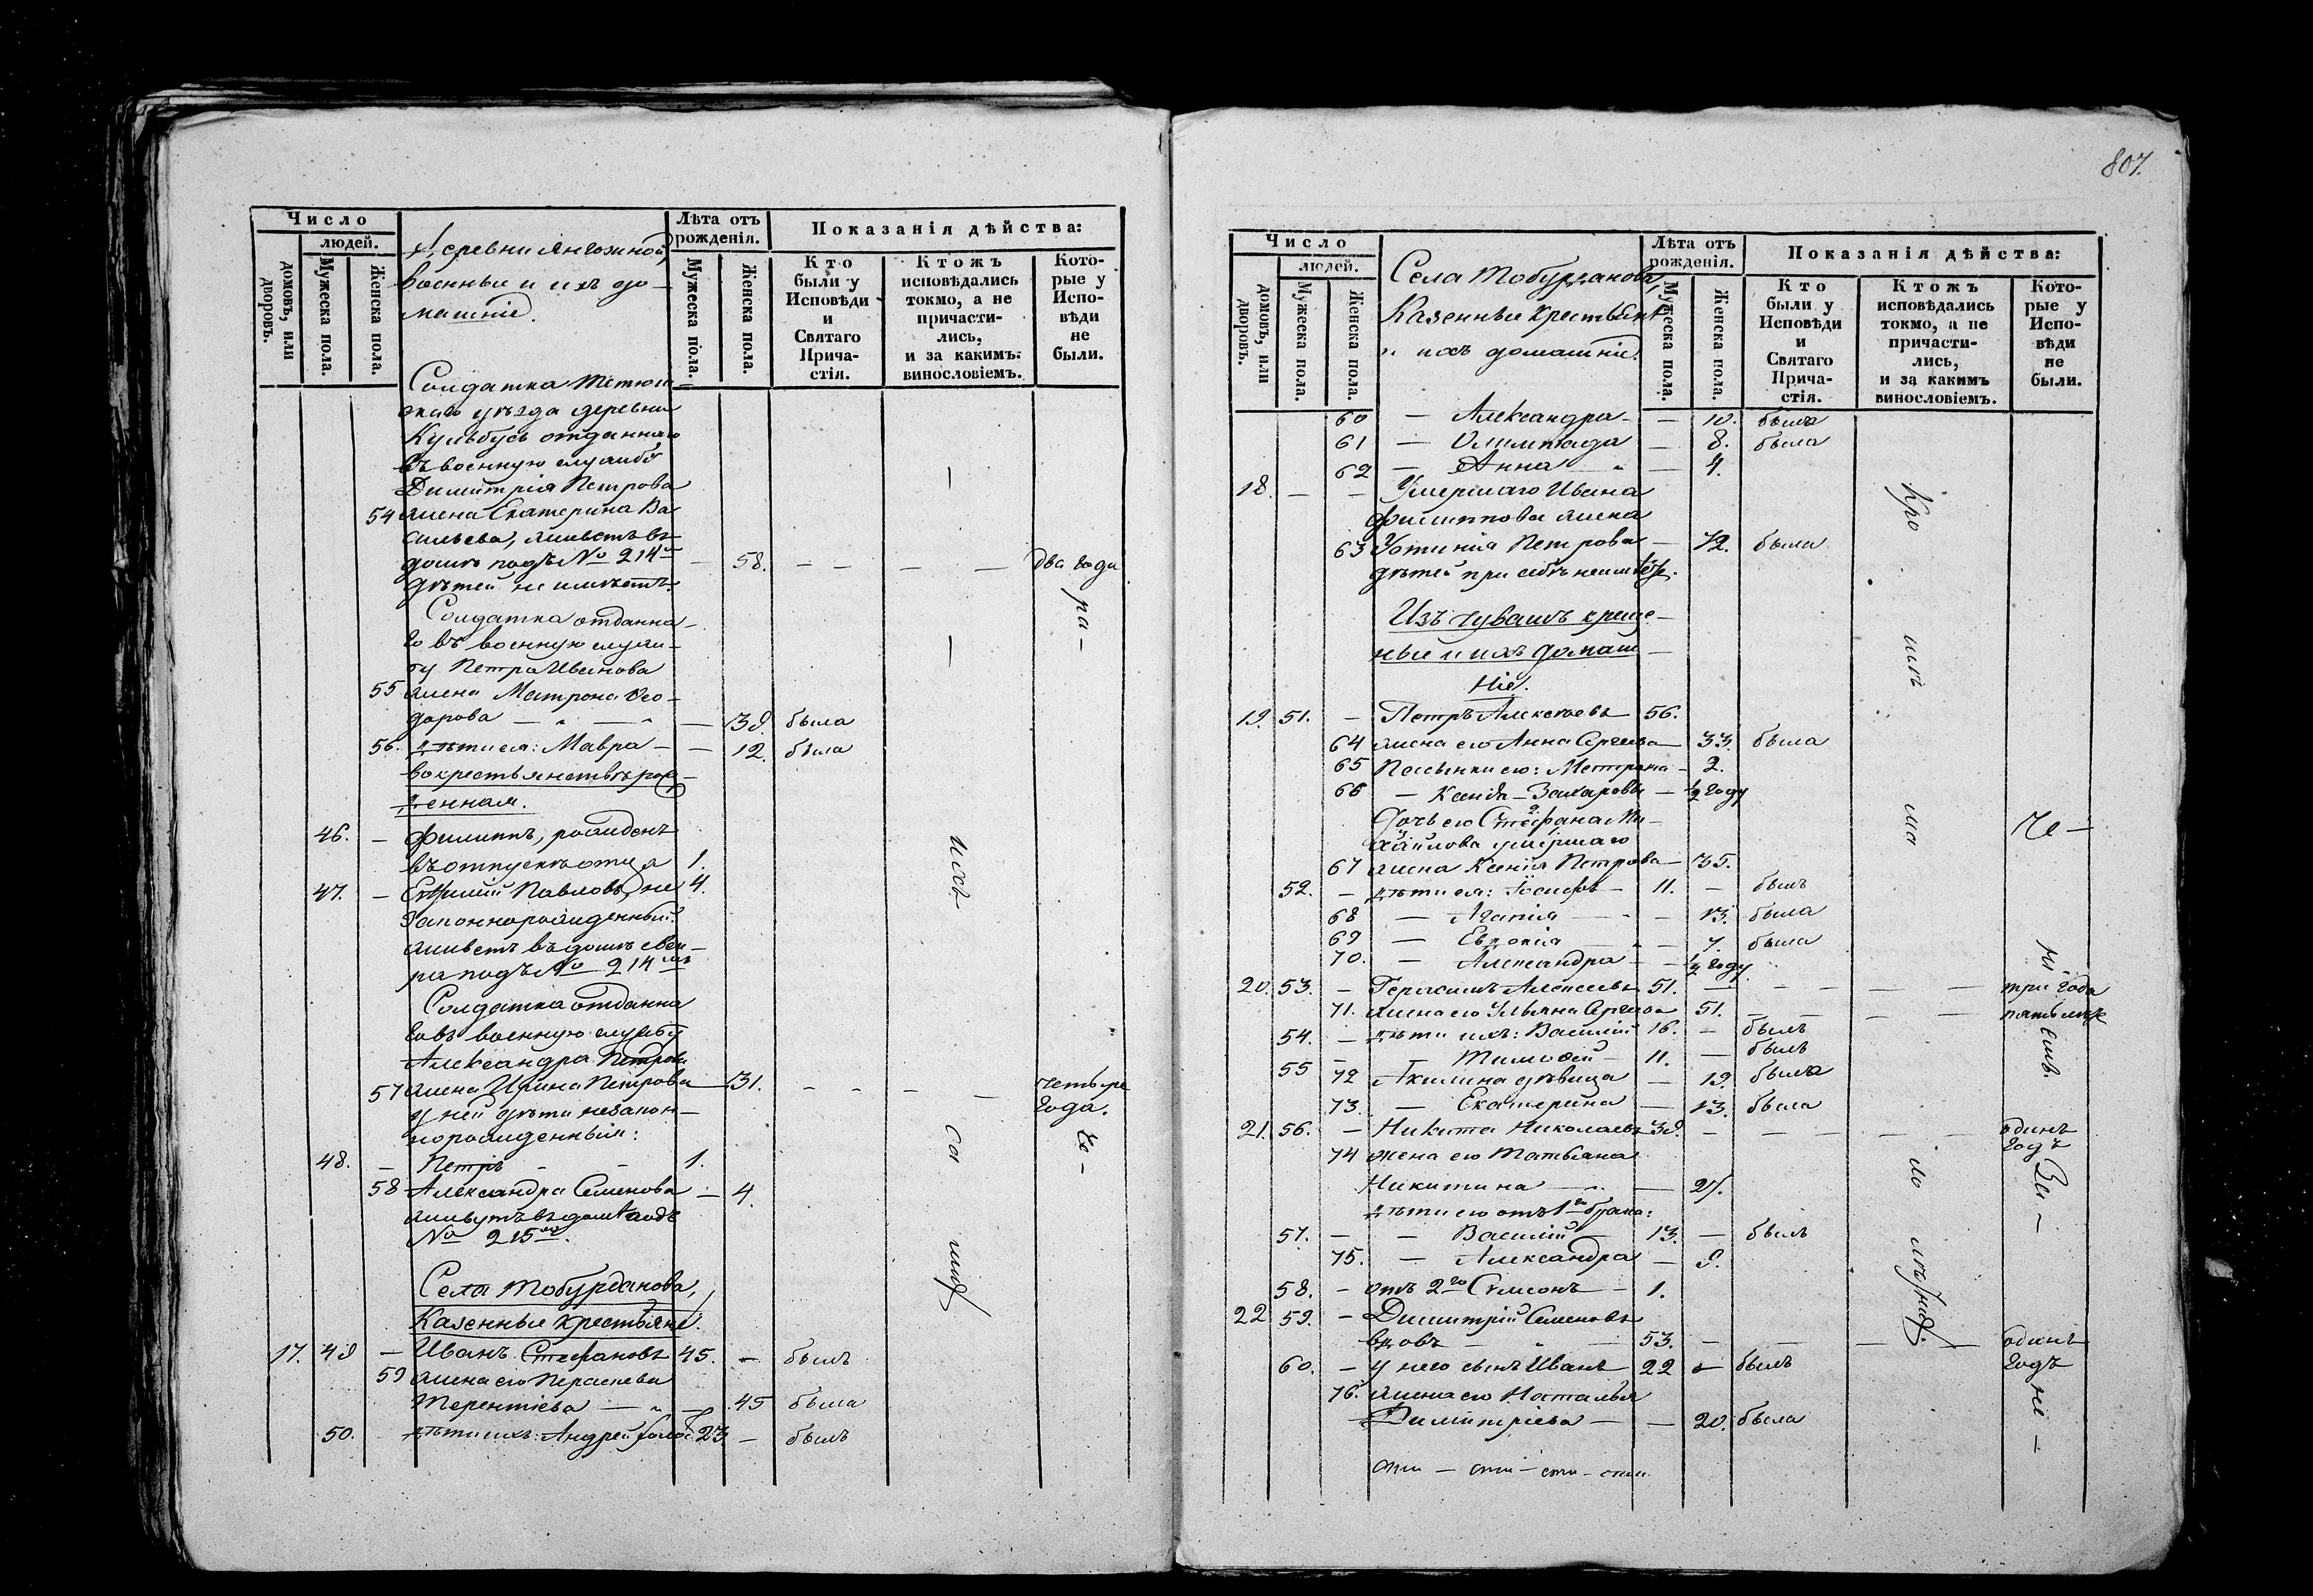 Число
людей.
домовъ, или дворовъ.
Мужеска пола.
Женска пола.
Деревни Янгозиной,
военные и ихъ до-
машніе.
Лѣта отъ рожденія.
Мужеска пола.
Женска пола.
Показанія дѣйства:
Кто были у Исповѣди и Святаго Причастія.
Ктожъ исповѣдались токмо, а не причастились, и за какимъ винословіемъ.
Которые у Исповѣди не были.
Солдатка Тетюш-
скаго уѣзда деревни
Кульбусъ отданнаго
въ военную службу
Димитрія Петрова
54 жена Екатерина Ва
сильева, живетъ въ
домѣ подъ № 214м — 58. — — — — два года
дѣтей не имѣетъ.
Солдатка отданна-
го въ военную служ-
бу Петра Иванова
55 жена Матрона Ѳео-
дорова — — — 38. была
56. дѣти ея: Мавра — — 12. была
въ крестьянствѣ рож-
денная.
46. — Филиппъ, рожденъ
въ отпускѣ отца 1.
47. — Евфимій Павловъ, не 4.
законнорожденный
живетъ въ домѣ свек-
ра подъ № 214мъ
Солдатка отданна
го въ военную службу
Александра Петрова
57 жена Ирина Петрова — 31. — — — — четыре
года.
у ней дѣти незакон-
норожденныя:
48. — Петръ — — 1.
58 Александра Семенова — 4.
живутъ въ домѣ подъ
№ 215мъ.
Села Тобурданова,
Казенные крестьяне.
17. 49 — Иванъ Стефановъ 45. — былъ
59 жена его Параскева
Терентіева — — 45 была
50. дѣти ихъ: Андрей холос. 23 — былъ
ихъ
са
ми
ра-
че-
807.
Число
людей.
домовъ, или дворовъ.
Мужеска пола.
Женска пола.
Села Тобурданова,
Казенные крестьяне
и ихъ домашніе.
Лѣта отъ рожденія.
Мужеска пола.
Женска пола.
Показанія дѣйства:
Кто были у Исповѣди и Святаго Причастія.
Ктожъ исповѣдались токмо, а не причастились, и за какимъ винословіемъ.
Которые у Исповѣди не были.
60 — Александра — — 10. была
61 — Олимпіада — 8. была
62 — Анна — — 4.
18. — — Умершаго Ивана
Филиппова жена
63 Устинія Петрова — 72. была
дѣтей при себѣ не имѣетъ.
Изъ чувашъ креще-
ные и ихъ домаш-
ніе.
19. 51. — Петръ Алексѣевъ 56.
64 жена его Анна Сергѣева — 33. была
65 Пасынки его: Матрона — 2.
66 — Ксенія Захарова — ½ году
Дочь его Стефана Ми-
хайлова умершаго
67 жена Ксенія Петрова — 35.
52. — дѣти ея: Іосифъ — 11. — былъ
68 — Агапія — — 13. была
69 — Евдокія — — 7. была
70. — Александра — — ½ году
20. 53. — Герасимъ Алексѣевъ 51. — — — — — три года
71. жена его Ульяна Сергѣева 51. — — — — пять лѣтъ
54. — дѣти ихъ: Василій 16. — былъ
55 — — Тимоѳей — 11. — былъ
72 Акилина дѣвица — 19. была
73. — Екатерина — 13. была
21. 56. — Никита Николаевъ 38. — — — — — одинъ
годъ
74 жена его Татьяна
Никитина — — 27.
дѣти его отъ 1го брака:
57. — — Василій — 13. — былъ
75. — Александра — 9.
58. — отъ 2го Симеонъ — 1.
22 59. — Димитрій Семеновъ
вдовъ — — 53. — — — одинъ
годъ
60. — у него сынъ Иванъ 22 — былъ
76. жена его Наталья
Димитріева — — 20. была
Кро
ма
ло
Не-
За-
не-